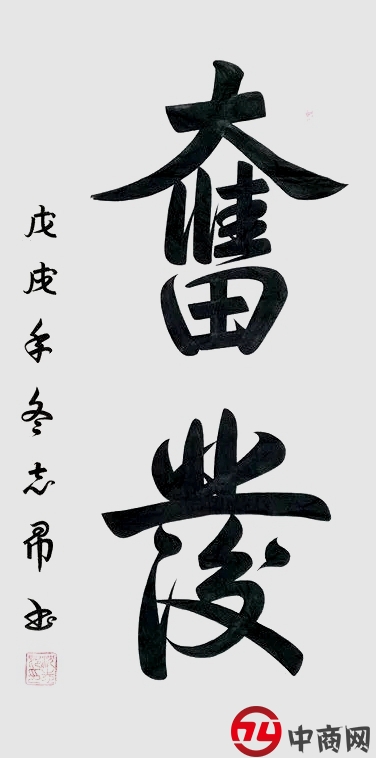 奮發
戊戌年冬志昂书
中商网